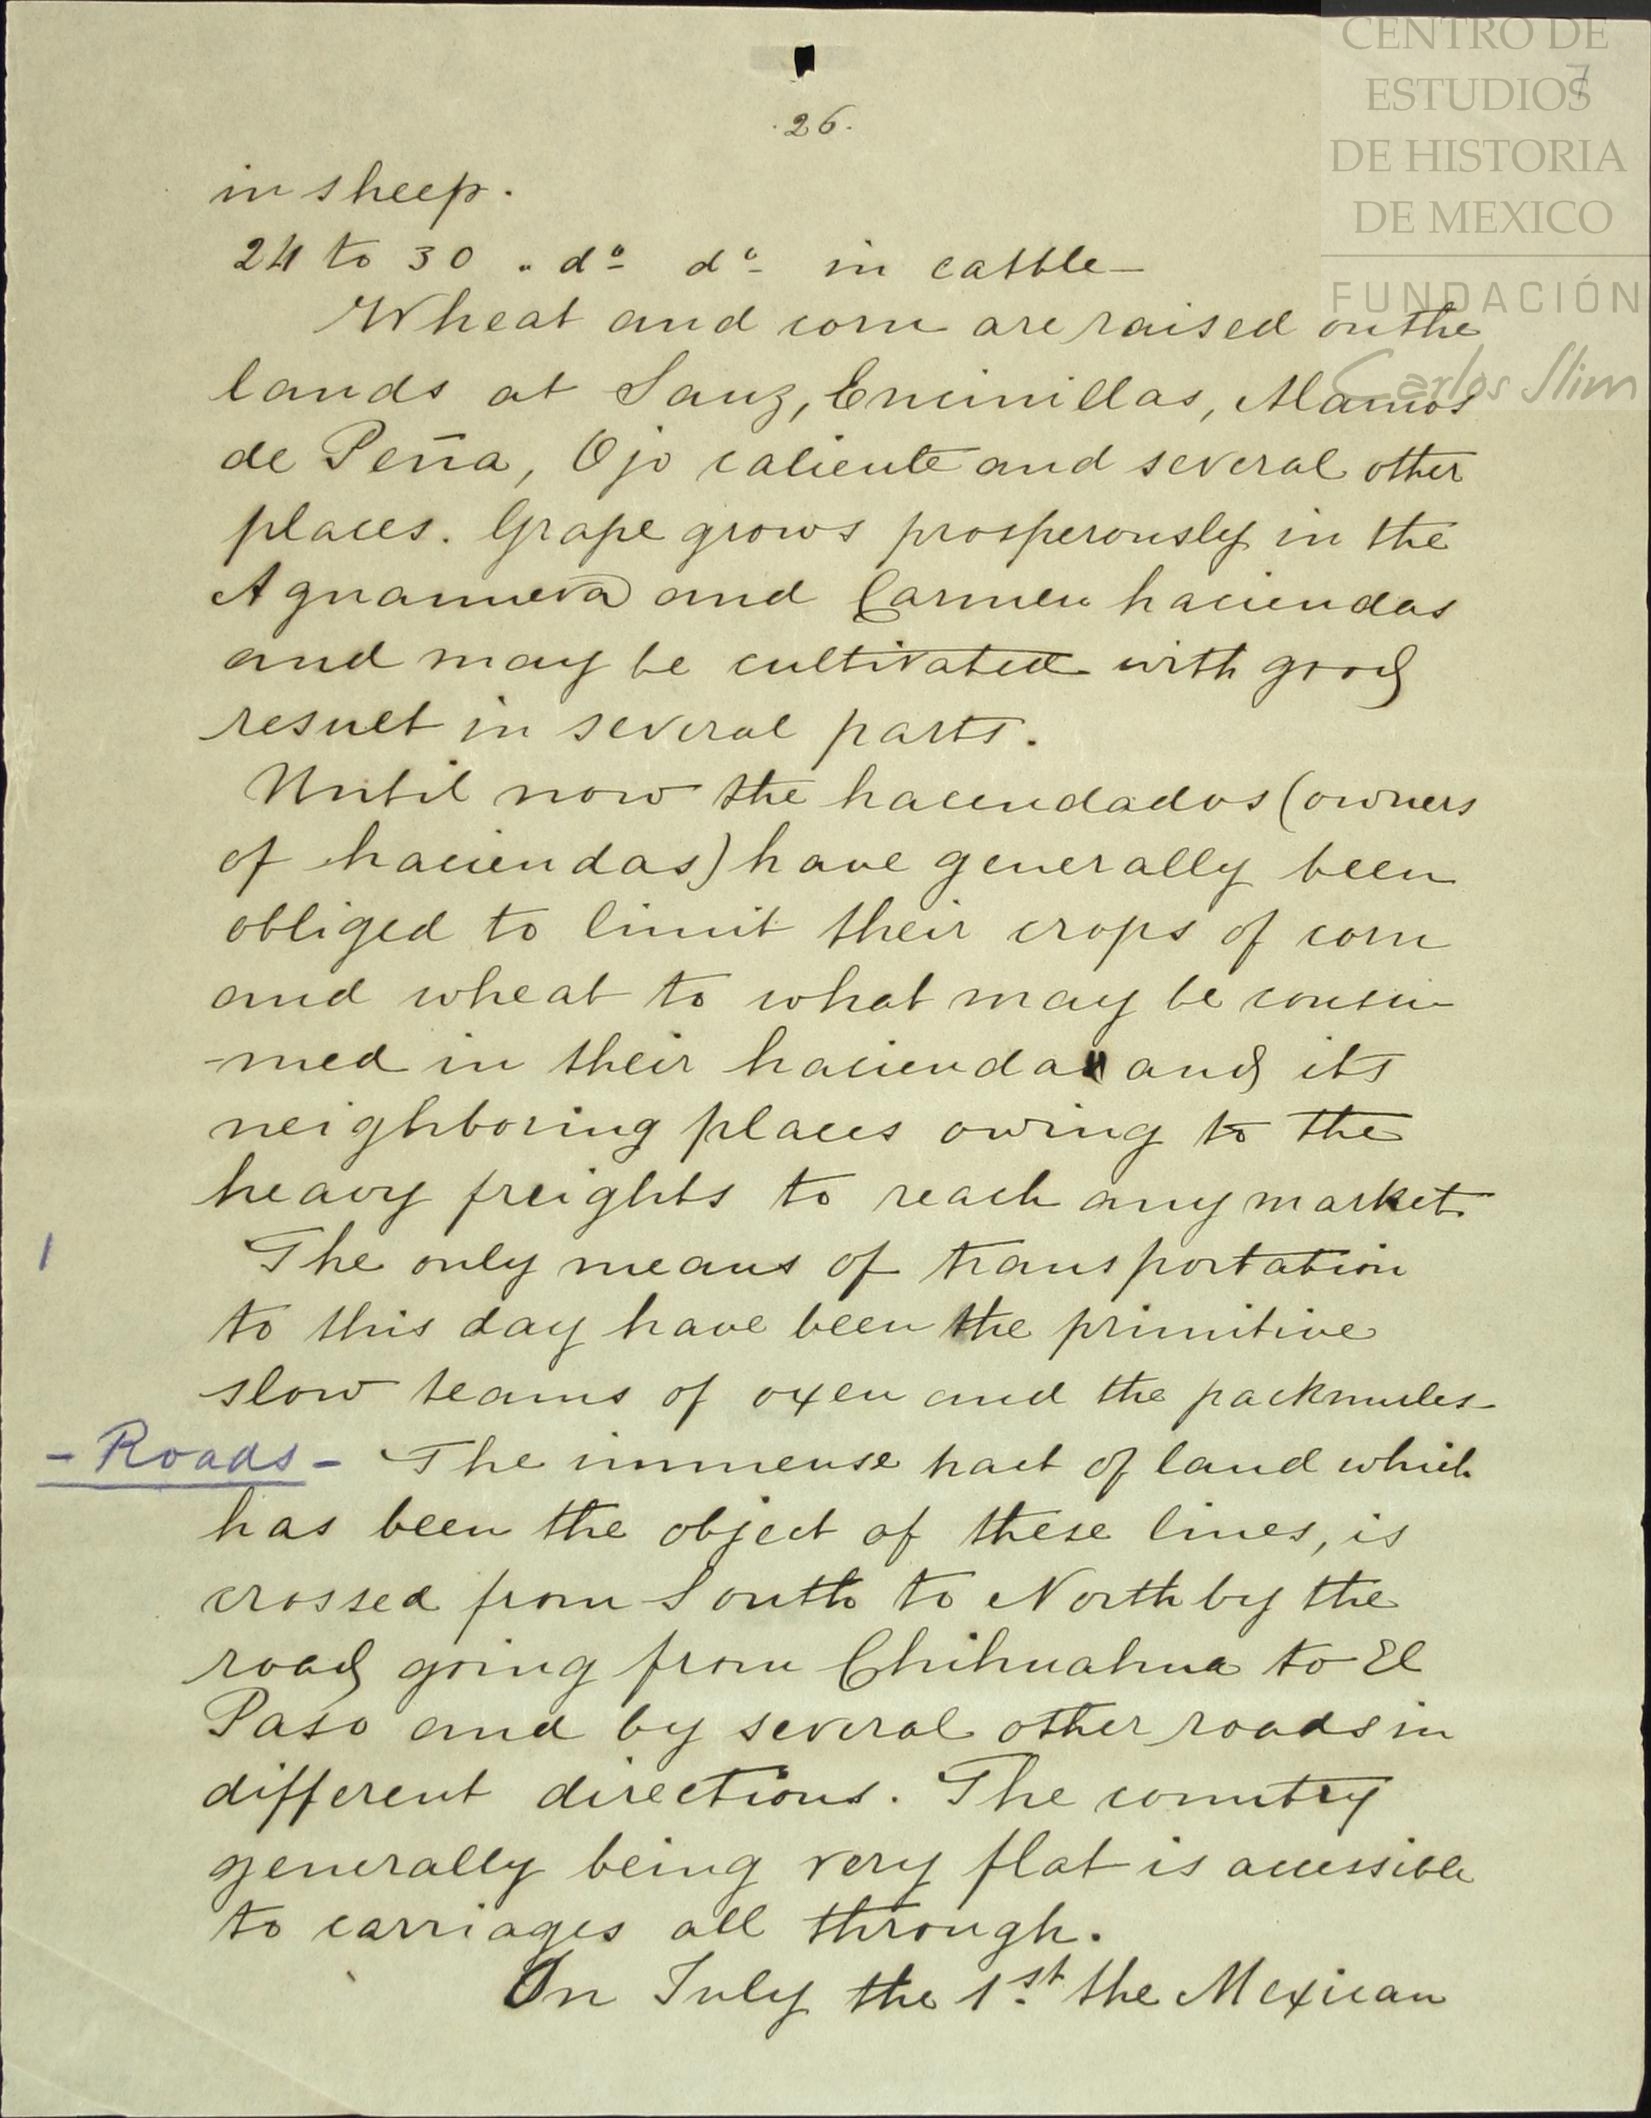 CENTRO DE
ESTUDIOS
DE HISTORIA
DE MEXICO
FUNDACIÓN
Carlos Slim
7
. 26 .
in sheep.
24 to 30 " dº dº in cattle—
Wheat and corn are raised on the
lands at Sauz, Encinillas, Alamos
de Peña, Ojo caliente and several other
places. Grape grows prosperously in the
Aguanueva and Carmen haciendas
and may be cultivated with good
result in several parts.
Until now the hacendados (owners
of haciendas) have generally been
obliged to limit their crops of corn
and wheat to what may be consu-
-med in their hacienda and its
neighboring places owing to the
heavy freights to reach any market.
1 The only means of transportation
to this day have been the primitive
slow teams of oxen and the packmules—
- Roads - The immense tract of land which
has been the object of these lines, is
crossed from South to North by the
road going from Chihuahua to El
Paso and by several other roads in
different directions. The country
generally being very flat is accessible
to carriages all through.
On July the 1st the Mexican